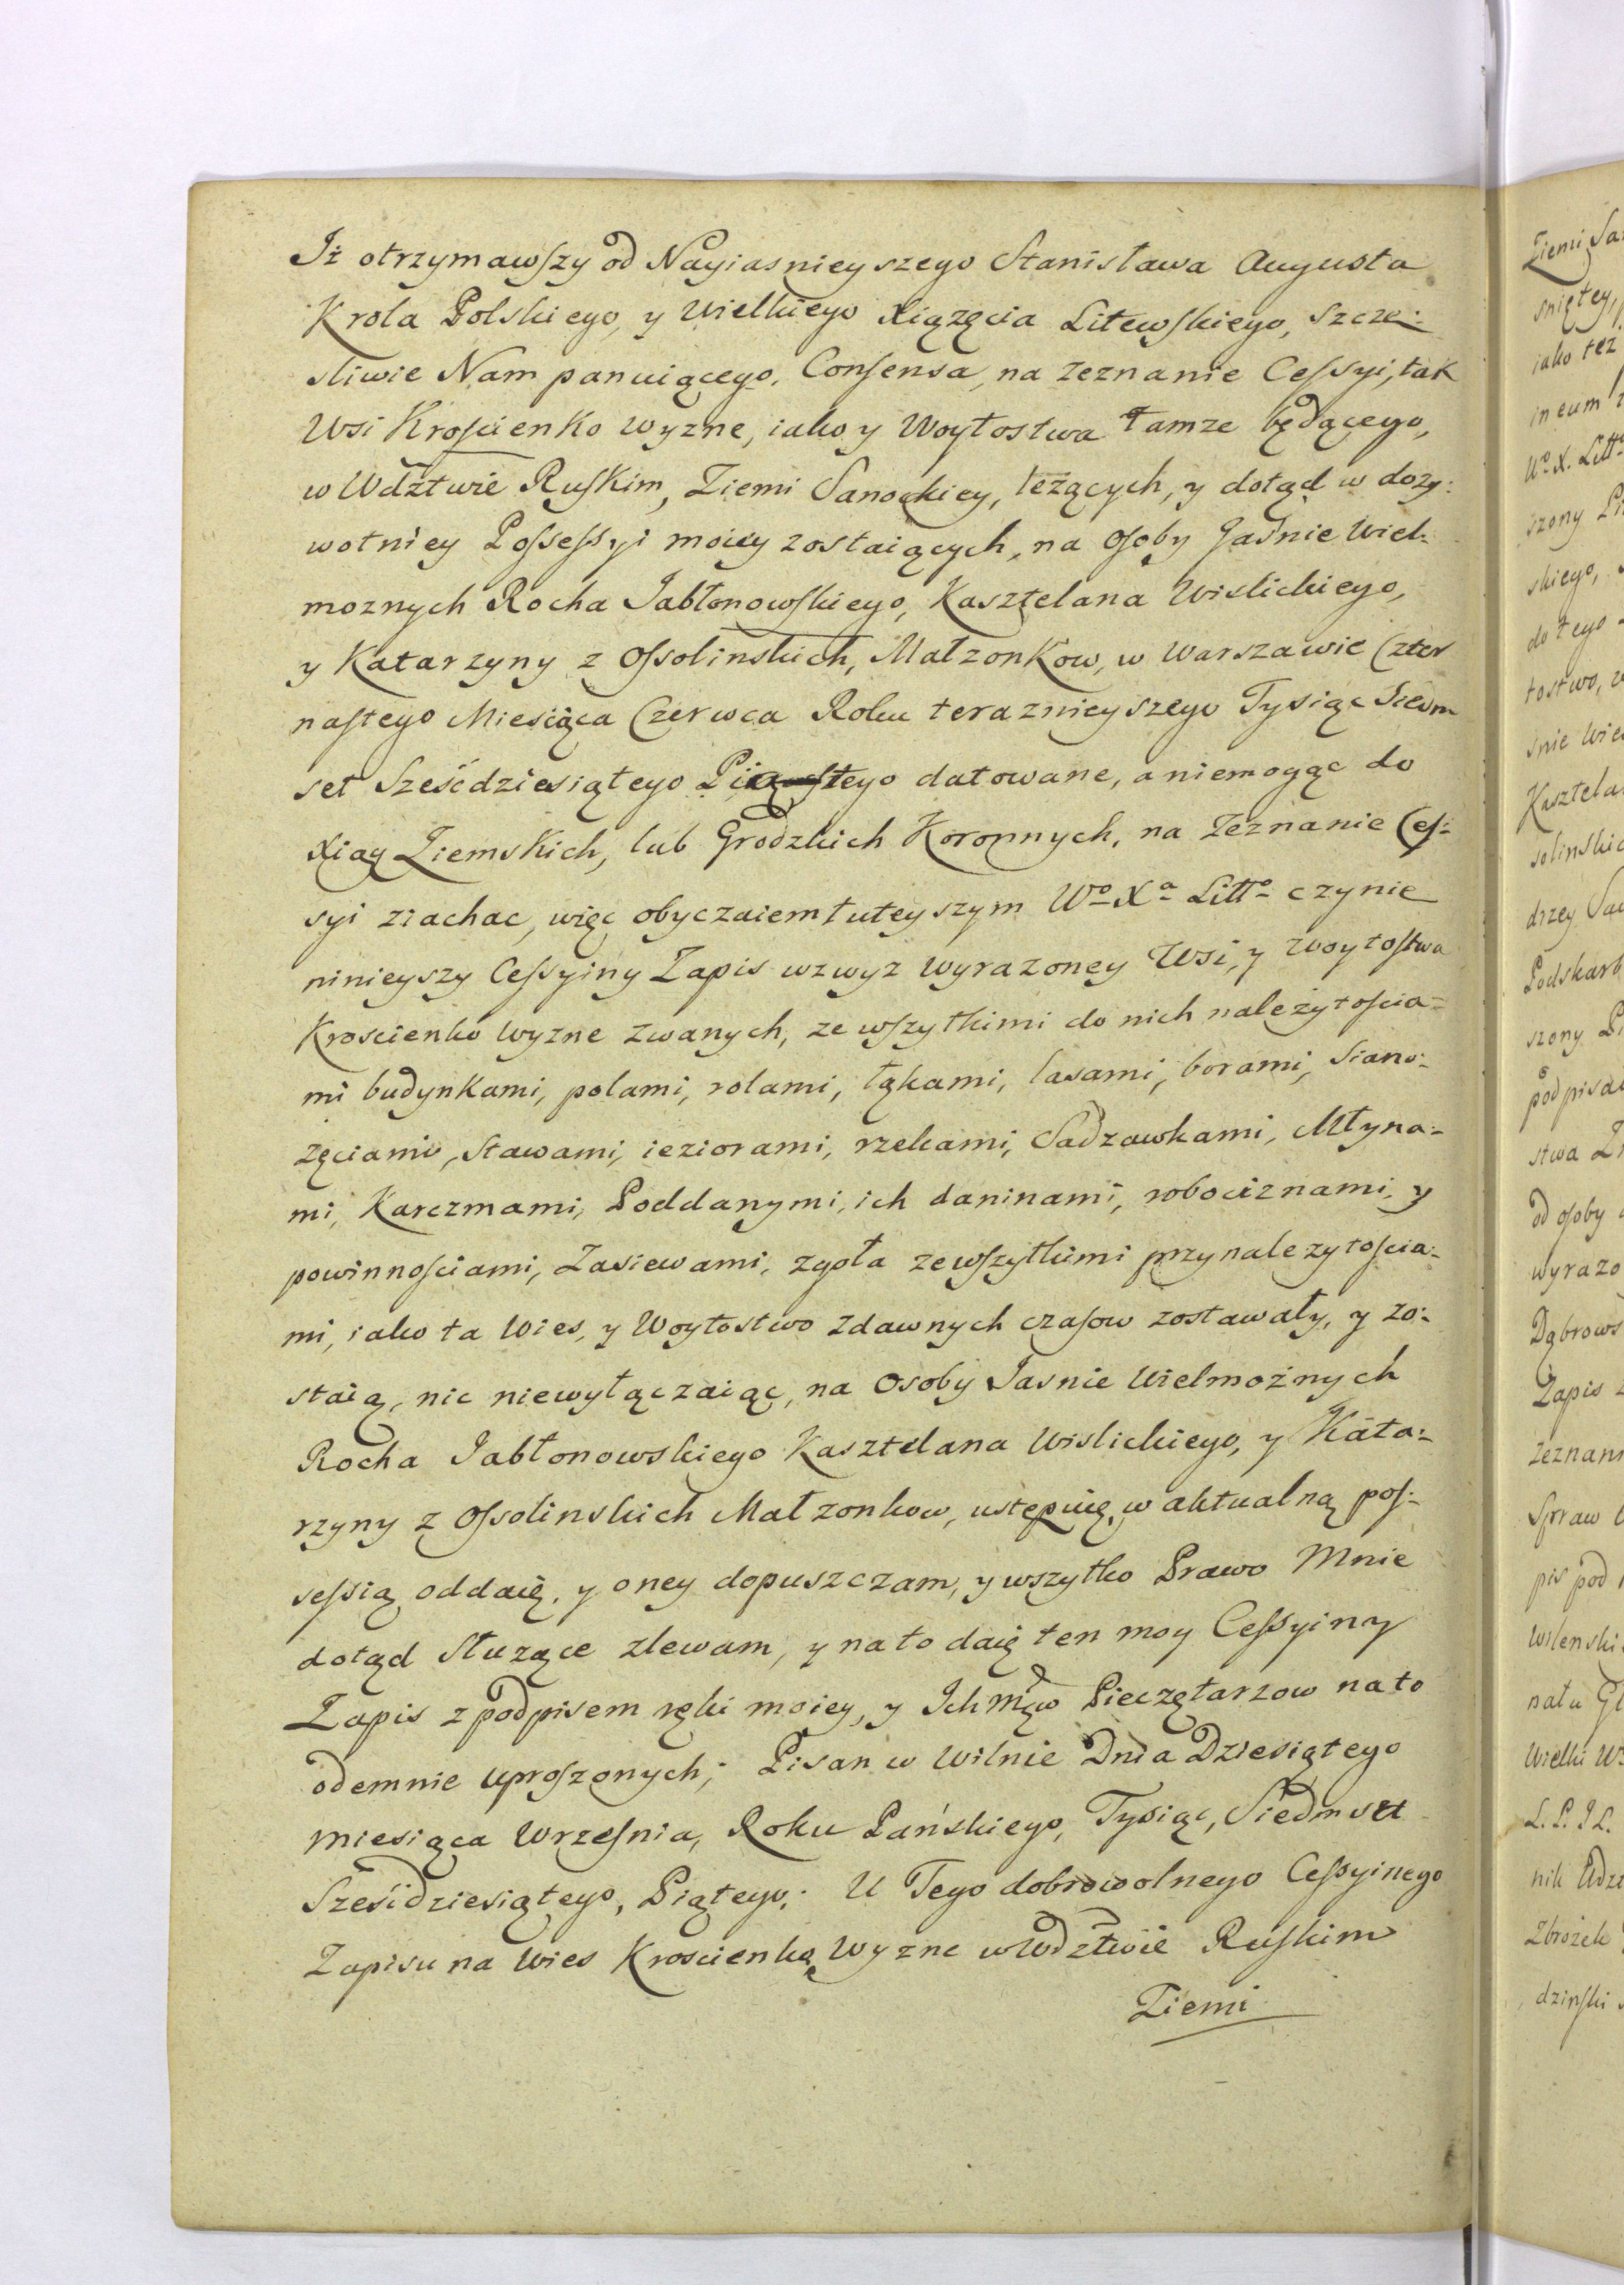 Iż otrzymawſzy od Nayiasnieyszego Stanisława Augusta
Krola Polskiego, y Wielkiego Xiązęcia Litewſkiego, szcze:
sliwie Nam panuiącego, Conſensa, na zeznanie Ceſsyi, tak
Wsi Kroſcienko Wyzne, iako y Woytostwa tamze będącego,
w Wdztwie Ruſkim, Ziemi Sanockiey, leżących, y dotąd w dozy:
wotniey Poſseſsyi moiey zostaiących, na Oſoby Jaśnie Wiel:
moznych Rocha Jabłonowſkiego, Kasztelana Wislickiego,
y Katarzyny z Oſsolinskich, Małzonkow, w Warszawie Czter
naſtego Miesiąca Czerwca Roku teraznieyszego Tysiąc Siedm
set Sześćdziesiątego Piątego datowane, a niemogąc do
Xiąg Ziemskich, lub Grodzkich Koronnych, na Zeznanie Ceſ:
syi ziachac, więc obyczaiem tuteyszym Wo Xa Litto czynie
ninieyszy Ceſsyiny Zapis wzwyz wyrazoney Wsi, y Woytoſtwa
Kroscienko Wyzne zwanych, ze wſzytkimi do nich należytoſcia=
mi budynkami, polami, rolami, łąkami, lasami, borami, Siano:
zęciami, Stawami, ieziorami, rzekami, Sadzawkami, Młyna:
mi, Karczmami, Poddanymi, ich daninami, robociznami, y
powinnoſciami, Zasiewami, zgoła zewſzytkimi przynalezytoſcia:
mi, iako ta Wies, y Woytostwo zdawnych czaſow zostawały, y zo:
staią, nic niewyłączaiąc, na Osoby Jasnie Wielmożnych
Rocha Jabłonowskiego Kasztelana Wislickiego, y Kata:
rzyny z Oſsolinskich Małzonkow, ustępuię, w aktualną poſ:
seſsią oddaię, y oney dopuszczam, y wszytko Prawo Mnie
dotąd Służące zlewam, y na to daię ten moy Ceſsyiny
Zapis z podpisem ręki moiey, y Ichmciow Pieczętarzow na to
odemnie uproſzonych; Pisan w Wilnie Dnia Dziesiątego
Miesiąca Wrzeſnia, Roku Pańskiego, Tysiąc, Siedmset
Sześćdziesiątego, Piątego: U Tego dobrowolnego Ceſsyinego
Zapisu na Wies Kroscienko Wyzne w Wdztwie Ruſkim
Ziemi